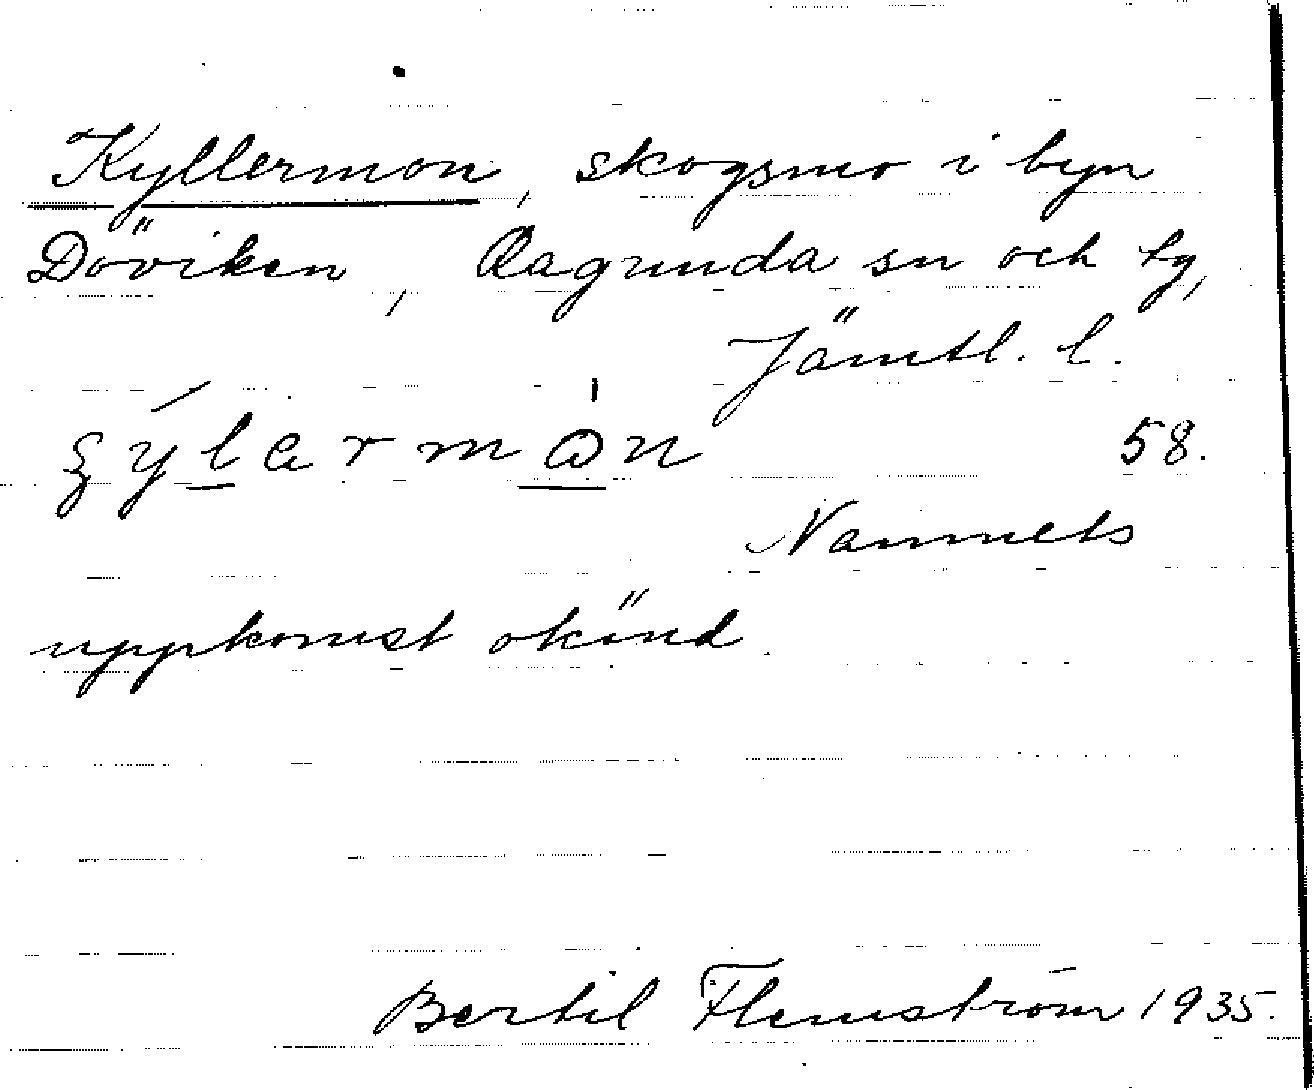 Kyllermon, skogsmo i byn
Döviken, Ragunda sn och tg,
Jämtl. l.
58.
Namnets
uppkomst okänd.
Bertil Flemström 1935.